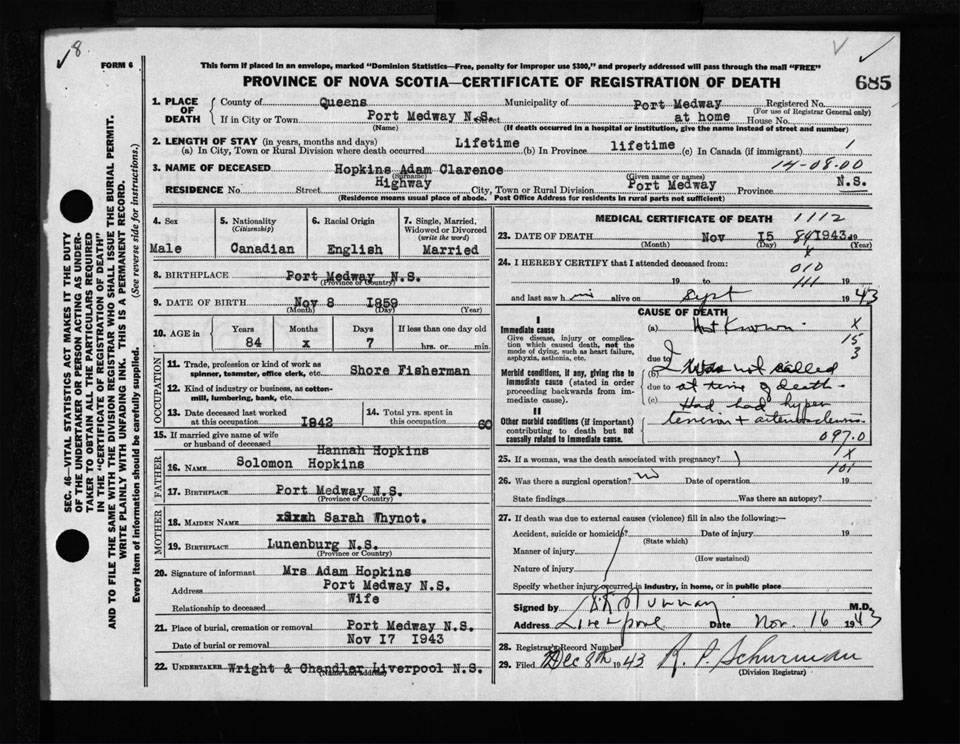 8.
FORM 6
This form if placed in an envelope, marked "Dominion Statistics—Free, penalty for improper use $300," and properly addressed will pass through the mail "FREE"
PROVINCE OF NOVA SCOTIA—CERTIFICATE OF REGISTRATION OF DEATH
685
SEC. 46—VITAL STATISTICS ACT MAKES IT THE DUTY
OF THE UNDERTAKER OR PERSON ACTING AS UNDER-
TAKER TO OBTAIN ALL THE PARTICULARS REQUIRED
IN THE "CERTIFICATE OF REGISTRATION OF DEATH"
AND TO FILE THE SAME WITH THE DIVISION REGISTRAR WHO SHALL ISSUE THE BURIAL PERMIT.
WRITE PLAINLY WITH UNFADING INK. THIS IS A PERMANENT RECORD.
Every item of information should be carefully supplied. (See reverse side for instructions.)
1. PLACE OF DEATH
County of Queens Municipality of Port Medway Registered No.
(For use of Registrar General only)
If in City or Town Port Medway N.S. Street at home House No.
(Name) (If death occurred in a hospital or institution, give the name instead of street and number)
2. LENGTH OF STAY (in years, months and days)
(a) In City, Town or Rural Division where death occurred Lifetime (b) In Province lifetime (c) In Canada (if immigrant) 1
14-08-00
3. NAME OF DECEASED Hopkins Adam Clarence
(Surname) (Given name or names)
RESIDENCE No. Street Highway City, Town or Rural Division Port Medway Province N.S.
(Residence means usual place of abode. Post Office Address for residents in rural parts not sufficient)
4. Sex Male
5. Nationality (Citizenship) Canadian
6. Racial Origin English
7. Single, Married, Widowed or Divorced (write the word) Married
8. BIRTHPLACE Port Medway N.S.
(Province or Country)
9. DATE OF BIRTH Nov 8 1859
(Month) (Day) (Year)
10. AGE in Years 84 Months x Days 7 If less than one day old hrs. or min.
OCCUPATION
11. Trade, profession or kind of work as spinner, teamster, office clerk, etc. Shore Fisherman
12. Kind of industry or business, as cotton-mill, lumbering, bank, etc.
13. Date deceased last worked at this occupation 1942
14. Total yrs. spent in this occupation 60
15. If married give name of wife or husband of deceased Hannah Hopkins
FATHER
16. NAME Solomon Hopkins
17. BIRTHPLACE Port Medway N.S.
(Province or Country)
MOTHER
18. MAIDEN NAME Sarah Whynot.
19. BIRTHPLACE Lunenburg N.S.
(Province or Country)
20. Signature of informant Mrs Adam Hopkins
Address Port Medway N.S.
Relationship to deceased Wife
21. Place of burial, cremation or removal Port Medway N.S.
Date of burial or removal Nov I7 1943
22. UNDERTAKER Wright & Chandler Liverpool N.S.
(Name and address)
MEDICAL CERTIFICATE OF DEATH 1112
23. DATE OF DEATH Nov I5 84 1943 19
(Month) (Day) (Year)
x
24. I HEREBY CERTIFY that I attended deceased from:
010
19 to 111 19
and last saw h im alive on Sept 1943
CAUSE OF DEATH
I
Immediate cause
Give disease, injury or complication which caused death, not the mode of dying, such as heart failure, asphyxia, asthenia, etc.
Morbid conditions, if any, giving rise to immediate cause (stated in order proceeding backwards from immediate).
II
Other morbid conditions (if important) contributing to death but not causally related to immediate cause.
(a) Not Known. x
15
3
due to
(b) I was not called
due to at time of death.
(c) Had had hyper
tension + arteriosclerosis.
097.0
25. If a woman, was the death associated with pregnancy? 1x
101
26. Was there a surgical operation? no Date of operation 19
State findings Was there an autopsy?
27. If death was due to external causes (violence) fill in also the following:—
Accident, suicide or homicide? Date of injury 19
(State which)
Manner of injury
(How sustained)
Nature of injury
Specify whether injury occurred in industry, in home, or in public place
Signed by M.D.
Address Liverpool Date Nov. 16 1943
28. Registrar's Record Number
29. Filed Dec 8th 1943 R. P. Schurman
(Division Registrar)